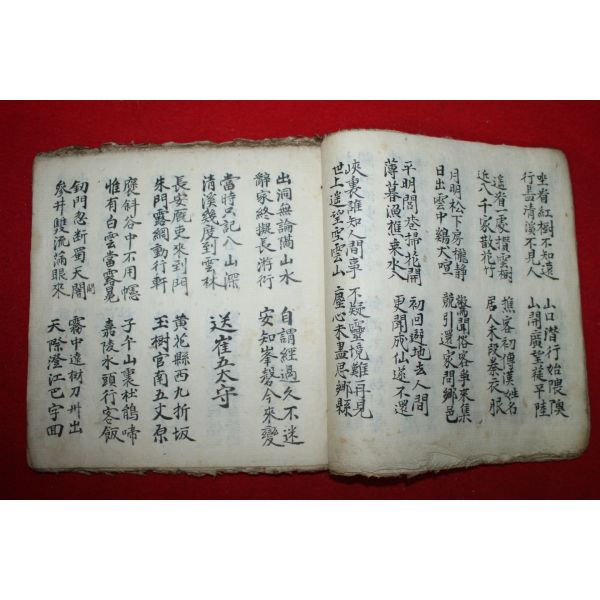 坐看紅樹不知遠
行盡清溪不見人
山口潛行始隈隩
山開廣望旋平陸
遙看一處攢雲樹
近入千家散花竹
樵客初傳漢姓名
居人未改秦衣服
月明松下房櫳靜
日出雲中鷄犬喧
驚聞俗客爭來集
競引還家問鄉邑
平明閭巷掃花開
薄暮漁樵乘水入
初因避地去人間
更聞成仙遂不還
峽裏誰知人間事
世上遙望空雲山
不疑靈境難再見
塵心未盡思鄉縣
出洞無論隔山水
辭家終擬長游衍
自謂經過久不迷
安知峯壑今來變
當時只記入山深
清溪幾度到雲林
送崔五太守
長安廐吏來到門
朱門露網動行軒
黃花縣西九折坂
玉樹宮南五丈原
褒斜谷中不用幰
惟有白雲當露冕
子午山裏杜鵑啼
嘉陵水頭行客飯
劍門忽斷蜀天開
參井雙流滿眼來
霧中遠樹刀州出
天際澄江巴字回